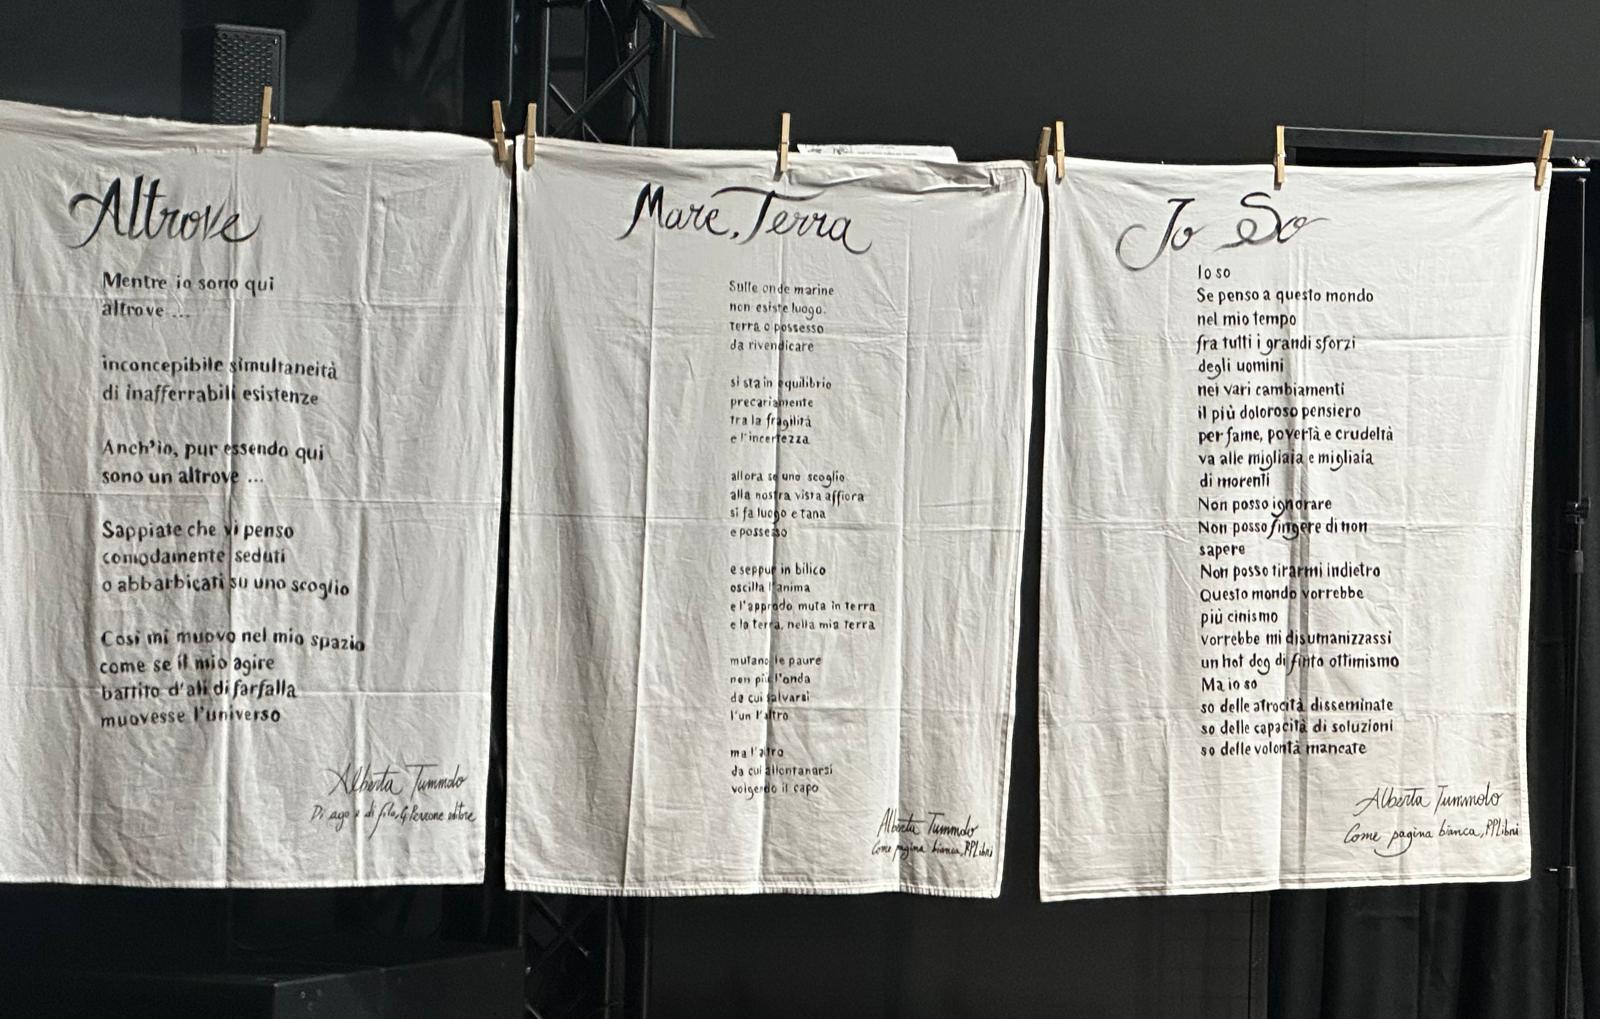 Altrove
Mentre io sono qui
altrove ...
inconcepibile simultaneità
di inafferrabili esistenze
Anch'io, pur essendo qui
sono un altrove ...
Sappiate che vi penso
comodamente seduti
o abbarbicati su uno scoglio
Così mi muovo nel mio spazio
come se il mio agire
battito d'ali di farfalla
muovesse l'universo
Alberta Tummolo
Di ago e di filo, G Perrone editore
Mare, Terra
Sulle onde marine
non esiste luogo.
terra o possesso
da rivendicare
si sta in equilibrio
precariamente
tra la fragilità
e l'incertezza
allora se uno scoglio
alla nostra vista affiora
si fa luogo e tana
e possesso
e seppur in bilico
oscilla l'anima
e l'approdo muta in terra
e la terra, nella mia terra
mutano le paure
non più l'onda
da cui salvarsi
l'un l'altro
ma l'altro
da cui allontanarsi
volgendo il capo
Alberta Tummolo
Come pagina bianca, RPLibri
Io So
Io so
Se penso a questo mondo
nel mio tempo
fra tutti i grandi sforzi
degli uomini
nei vari cambiamenti
il più doloroso pensiero
per fame, povertà e crudeltà
va alle migliaia e migliaia
di morenti
Non posso ignorare
Non posso fingere di non
sapere
Non posso tirarmi indietro
Questo mondo vorrebbe
più cinismo
vorrebbe mi disumanizzassi
un hot dog di finto ottimismo
Ma io so
so delle atrocità disseminate
so delle capacità di soluzioni
so delle volontà mancate
Alberta Tummolo
Come pagina bianca, RPLibri